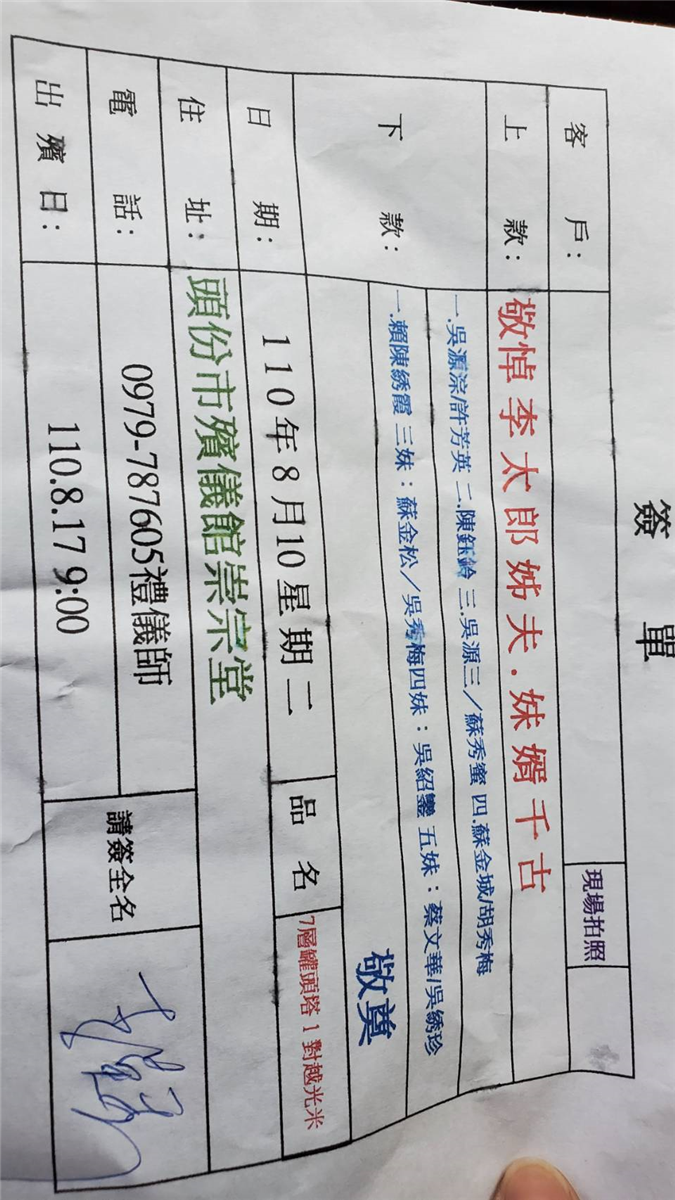 簽單
客戶：
現場拍照
上款：
敬悼李太郎姊夫.妹婿千古
下款：
一.吳源淙/許芳英 二.陳鈺鈴 三.吳源三／蘇秀蜜 四.蘇金城/胡秀梅
一.賴陳綉霞 三妹：蘇金松／吳秀梅四妹：吳紹鑾 五妹：蔡文華/吳綉珍
敬奠
日期：
110年8月10星期二
品名
7層罐頭塔1對越光米
住址：
頭份市殯儀館崇宗堂
電話：
0979-787605禮儀師
請簽全名
出殯日：
110.8.17 9:00